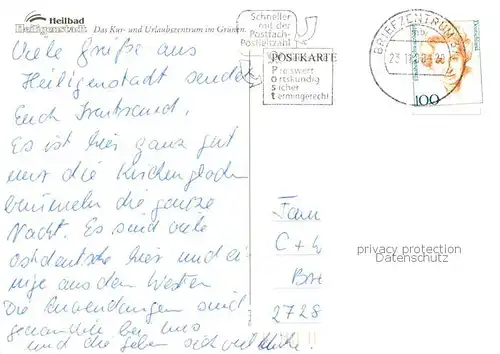 Heilbad
Heiligenstadt Das Kur- und Urlaubszentrum im Grünen
Schneller
mit der
Postfach-
Postleitzahl
POSTKARTE
Preiswert
Ortskundig
Sicher
Termingerecht
BRIEFZENTRUM 37
100
Viele Grüße aus
Heiligenstadt sendet
Euch
Es ist hier ganz gut
nur die Kirchenglocken
bimmeln die ganze
Nacht. Es sind viele
ostdeutsche hier und ei-
nige aus dem Westen
Die Anwendungen sind
bei uns
und die geben sich viel Mühe.
Fam
C + W
2728
privacy protection
Datenschutz